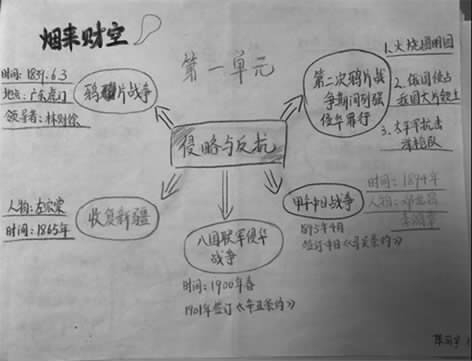 烟来财空
第一单元
侵略与反抗
鸦片战争
时间:1839.6.3
地点:广东虎门
领导者:林则徐
第二次鸦片战
争期间列强
侵华罪行
1.火烧圆明园
2.俄国侵占
我国大片领土
3.太平军抗击
洋枪队
收复新疆
人物:左宗棠
时间:1865年
八国联军侵华
战争
时间:1900年春
1901年签订《辛丑条约》
甲午中日战争
时间:1894年
人物:邓世昌
李鸿章
1895年4月
签订中日《马关条约》